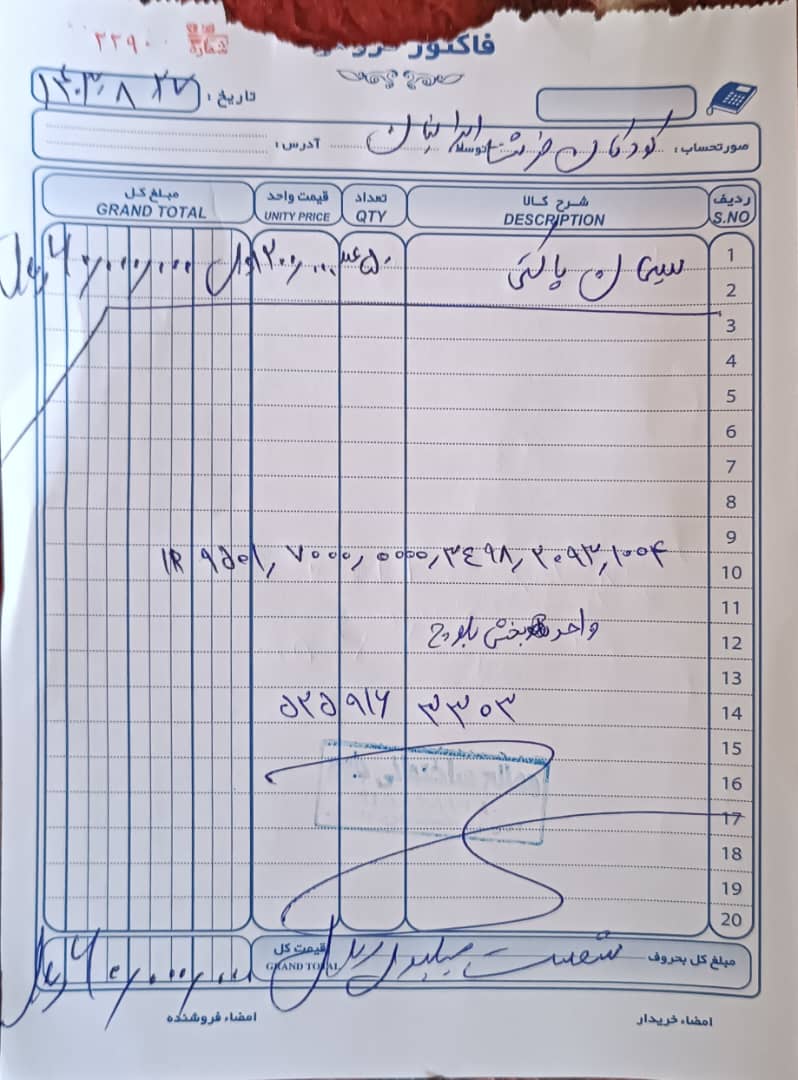 ۲۲۹۰۰
شماره
فاکتور فروش
تاریخ : ۱۴۰۳,۸ ۲۷
صورتحساب : کودکان فرشته ایرانیان آدرس :
ردیف شرح کالا تعداد قیمت واحد مبلغ کل
S.NO DESCRIPTION QTY UNITY PRICE GRAND TOTAL
1 سیمان پاکتی ۵۰ عدد ۱,۲۰۰,۰۰۰ ریال ۶۰,۰۰۰,۰۰۰ ریال
2
3
4
5
6
7
8
9
IR ۹۵۰۱, ۷۰۰۰, ۰۰۰۰, ۳۴۹۸, ۲۰۹۳, ۱۰۰۴
10
11
واحد بخش بلوچ
12
13
14 ۵۲۵ ۹۱۶ ۳۳۰۳
15
16
17
18
19
20
مبلغ کل بحروف شصت میلیون ریال قیمت کل ۶۰,۰۰۰,۰۰۰ ریال
GRAND TOTAL
امضاء خریدار امضاء فروشنده